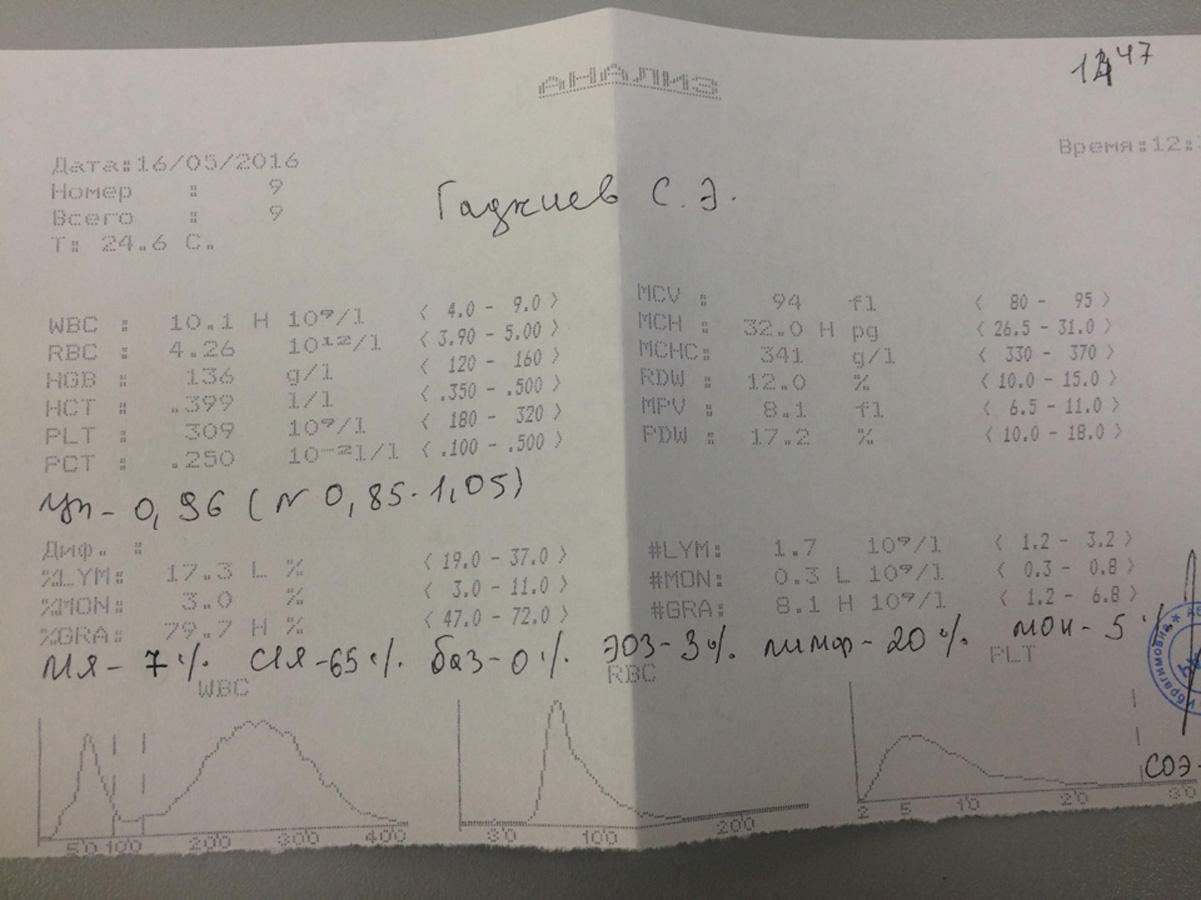 1247
АНАЛИЗ
Дата:16/05/2016 Время:12:
Номер : 9
Всего : 9
Гаджиев С. Э.
T: 24.6 C.
WBC : 10.1 H 10⁹/l < 4.0 - 9.0 > MCV : 94 fl < 80 - 95 >
RBC : 4.26 10¹²/l < 3.90 - 5.00 > MCH : 32.0 H pg < 26.5 - 31.0 >
HGB : 136 g/l < 120 - 160 > MCHC: 341 g/l < 330 - 370 >
HCT : .399 l/l < .350 - .500 > RDW : 12.0 % < 10.0 - 15.0 >
PLT : 309 10⁹/l < 180 - 320 > MPV : 8.1 fl < 6.5 - 11.0 >
PCT : .250 10⁻²l/l < .100 - .500 > PDW : 17.2 % < 10.0 - 18.0 >
Цп - 0,96 (N 0,85-1,05)
Диф. :
%LYM: 17.3 L % < 19.0 - 37.0 > #LYM: 1.7 10⁹/l < 1.2 - 3.2 >
%MON: 3.0 % < 3.0 - 11.0 > #MON: 0.3 L 10⁹/l < 0.3 - 0.8 >
%GRA: 79.7 H % < 47.0 - 72.0 > #GRA: 8.1 H 10⁹/l < 1.2 - 6.8 >
пя - 7% ся - 65% баз - 0% эоз - 3% лимф - 20% мон - 5%
WBC RBC PLT
СОЭ -
50 100 200 300 400 30 100 200 2 5 10 20 30
Ибрагимовна